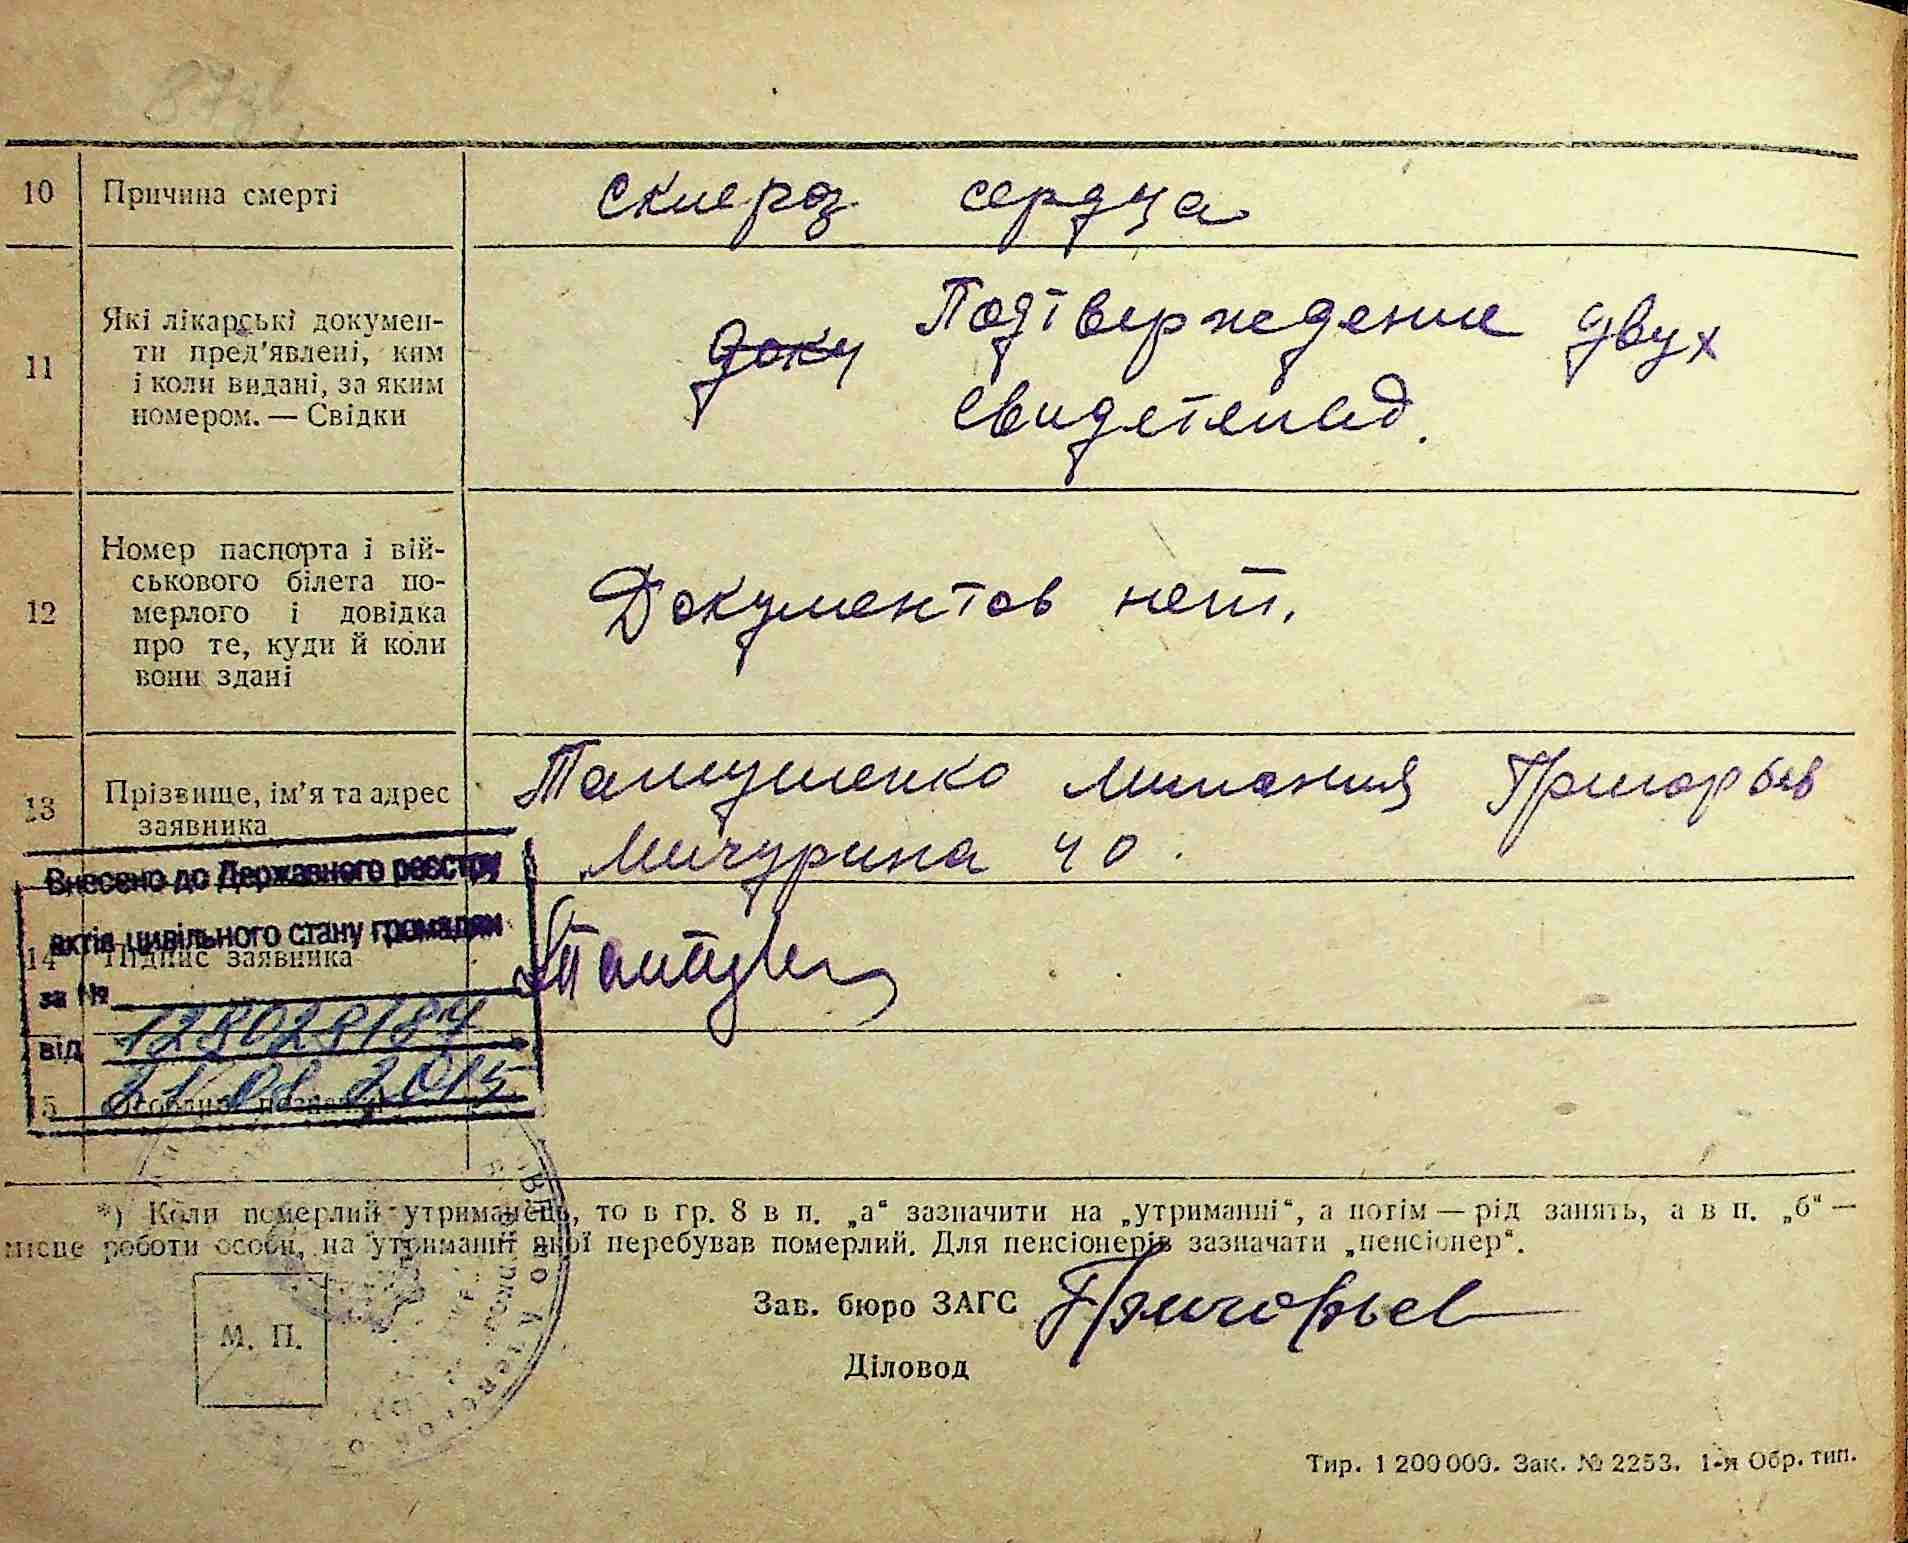 10 Причина смерті склероз сердца
11 Які лікарські докумен-
ти пред’явлені, ким
і коли видані, за яким
номером. — Свідки
доку Подтверждение двух
свидетелей.
12 Номер паспорта і вій-
ськового білета по-
мерлого і довідка
про те, куди й коли
вони здані
Документов нет.
13 Прізвище, ім’я та адрес
заявника
Григорьев
Мичурина 40.
Внесено до Державного реєстру
актів цивільного стану громадян
14 Підпис заявника
за №
128028184
від
21 08 2015
15
*) Коли померлий утриманець, то в гр. 8 в п. „а“ зазначити на „утриманні“, а потім — рід занять, а в п. „б“ —
місце роботи особи, на утриманні якої перебував померлий. Для пенсіонерів зазначати „пенсіонер“.
Зав. бюро ЗАГС Григорьев
М. П.
Діловод
Тир. 1 200 000. Зак. № 2253. 1-я Обр. тип.